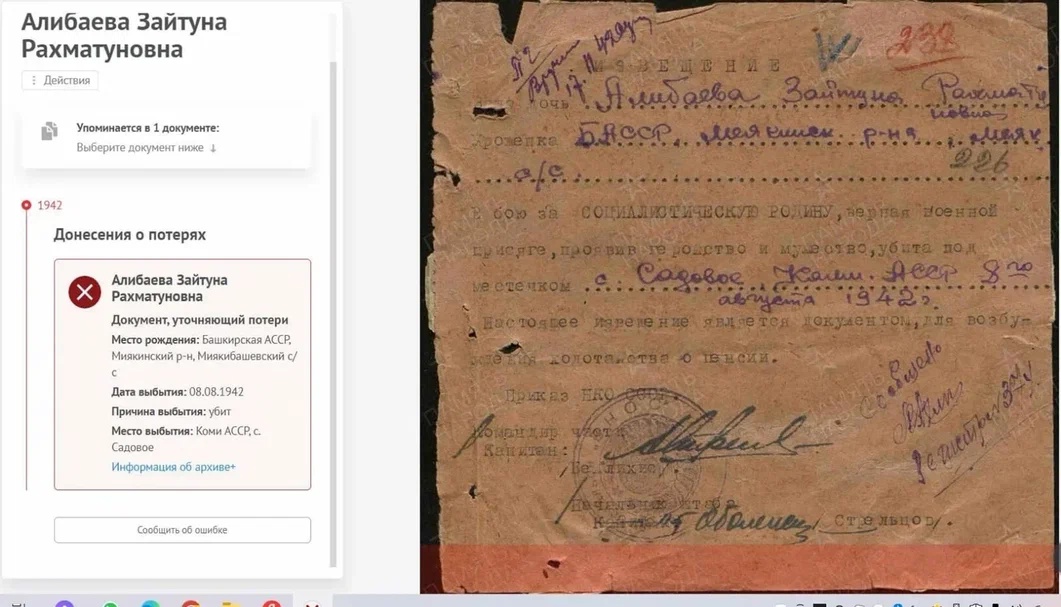 Алибаева Зайтуна
Рахматуновна
Действия
Упоминается в 1 документе:
Выберите документ ниже ↓
1942
Донесения о потерях
Алибаева Зайтуна
Рахматуновна
Документ, уточняющий потери
Место рождения: Башкирская АССР,
Миякинский р-н, Миякибашевский с/
с
Дата выбытия: 08.08.1942
Причина выбытия: убит
Место выбытия: Коми АССР, с.
Садовое
Информация об архиве+
Сообщить об ошибке
238
ИЗВЕЩЕНИЕ
дочь Алибаева Зайтуна Рахмату
новна
Уроженка БАССР, Миякинск. р-на, Мияк.
226
с/с.
В бою за СОЦИАЛИСТИЧЕСКУЮ РОДИНУ, верная военной
присяге, проявив геройство и мужество, убита под
местечком с. Садовое Калм. АССР 8го
августа 1942г.
Настоящее извещение является документом, для возбу-
ждения ходотайства о пенсии.
Приказ НКО СССР.
Командир части
Капитан:
Начальник штаба
Оболенец /Стрельцов/.